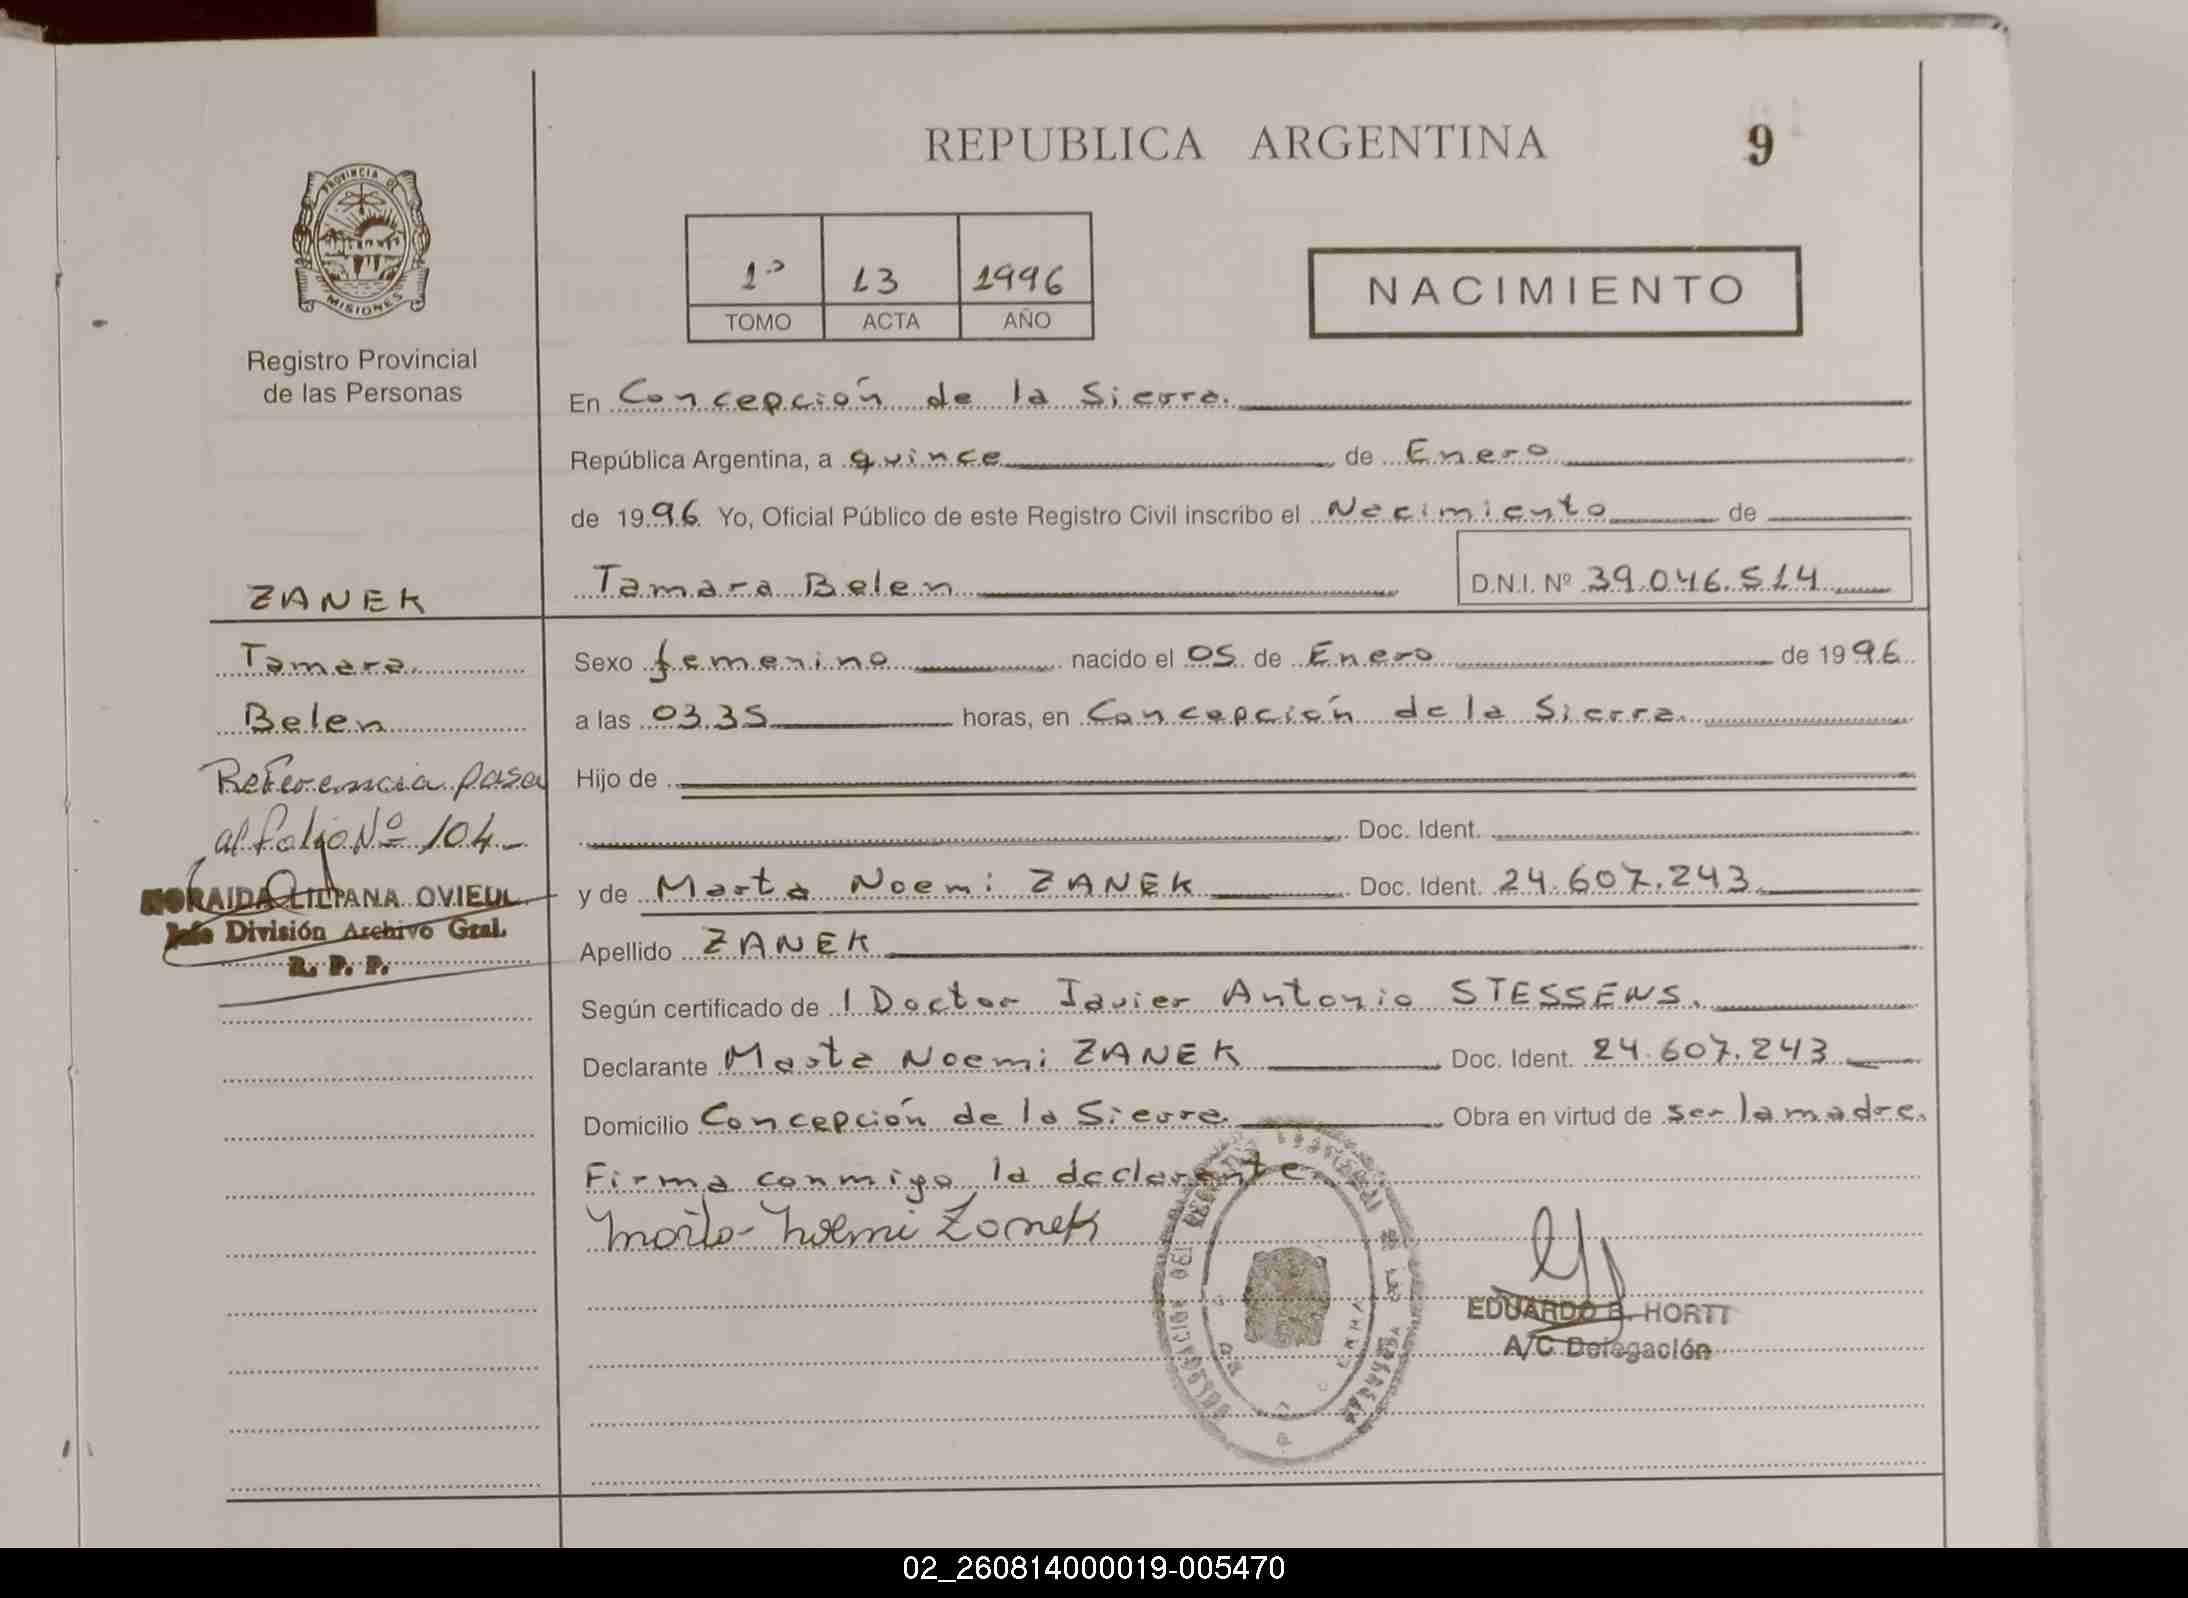 REPUBLICA ARGENTINA
9
PROVINCIA DE
MISIONES
Registro Provincial
de las Personas
1º 13 1996
TOMO ACTA AÑO
NACIMIENTO
En Concepción de la Sierra.
República Argentina, a quince de Enero
de 1996 Yo, Oficial Público de este Registro Civil inscribo el Nacimiento de
Tamara Belen D.N.I. Nº 39.046.514
Sexo femenino nacido el 05 de Enero de 1996
a las 03.35 horas, en Concepción de la Sierra.
Hijo de
Doc. Ident.
y de Marta Noemi ZANEK Doc. Ident. 24.607.243
Apellido ZANEK
Según certificado de l Doctor Javier Antonio STESSENS.
Declarante Marta Noemi ZANEK Doc. Ident. 24.607.243
Domicilio Concepción de la Sierra Obra en virtud de ser la madre.
Firma conmigo la declarante.
Marta Noemi Zanek
EDUARDO R. HORTT
A/C Delegación
ZANEK
Tamara
Belen
Referencia pasa
al folio Nº 104
LILIANA
Jefe División Archivo Gral.
R. P. P.
02_260814000019-005470